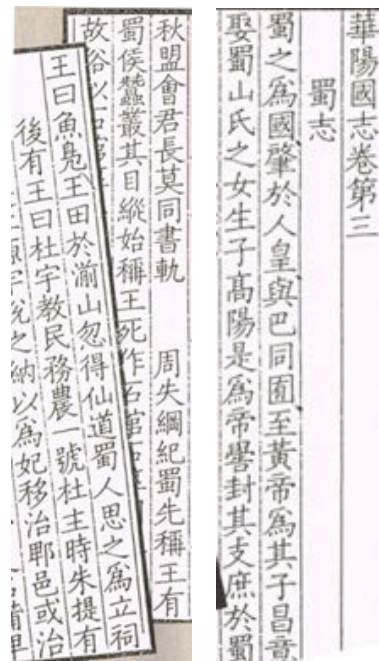 華陽國志卷第三
蜀志
蜀之爲國肇於人皇與巴同囿至黃帝爲其子昌意
娶蜀山氏之女生子髙陽是爲帝嚳封其支庶於蜀
秋盟會君長莫同書軌 周失綱紀蜀先稱王有
蜀侯蠶叢其目縱始稱王死作石棺
故俗以石棺
王曰魚鳧王田於湔山忽得仙道蜀人思之爲立祠
後有王曰杜宇教民務農一號杜主時朱提有
源宇悅之納以爲妃移治郫邑或治